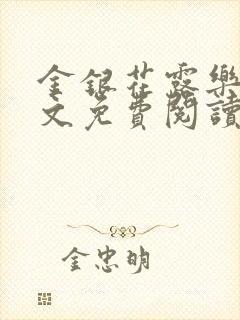 金銀花露樂
文免費閱讀
金忠明